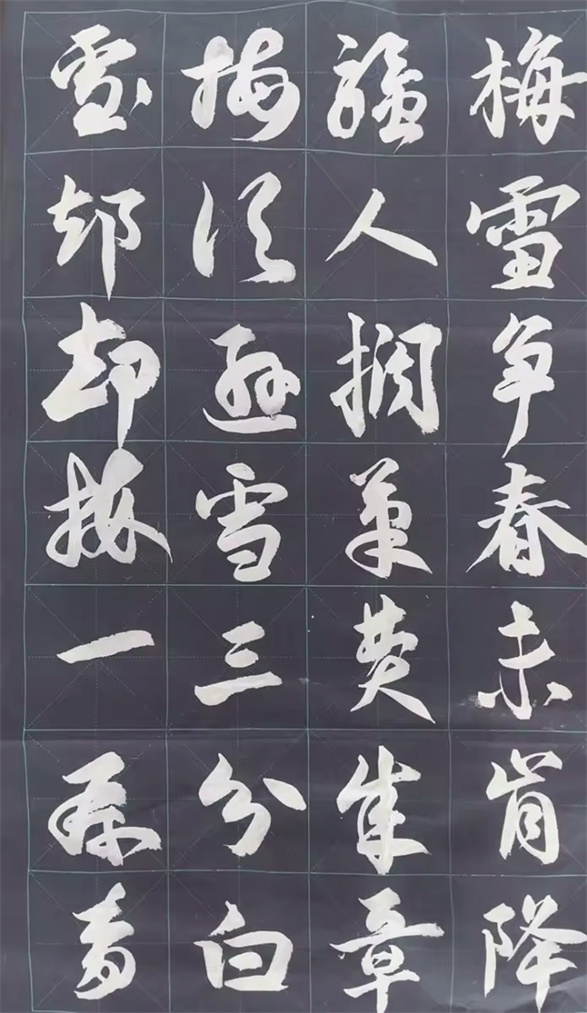 梅雪争春未肯降
骚人搁笔费章
梅须逊雪三分白
雪却梅一段香